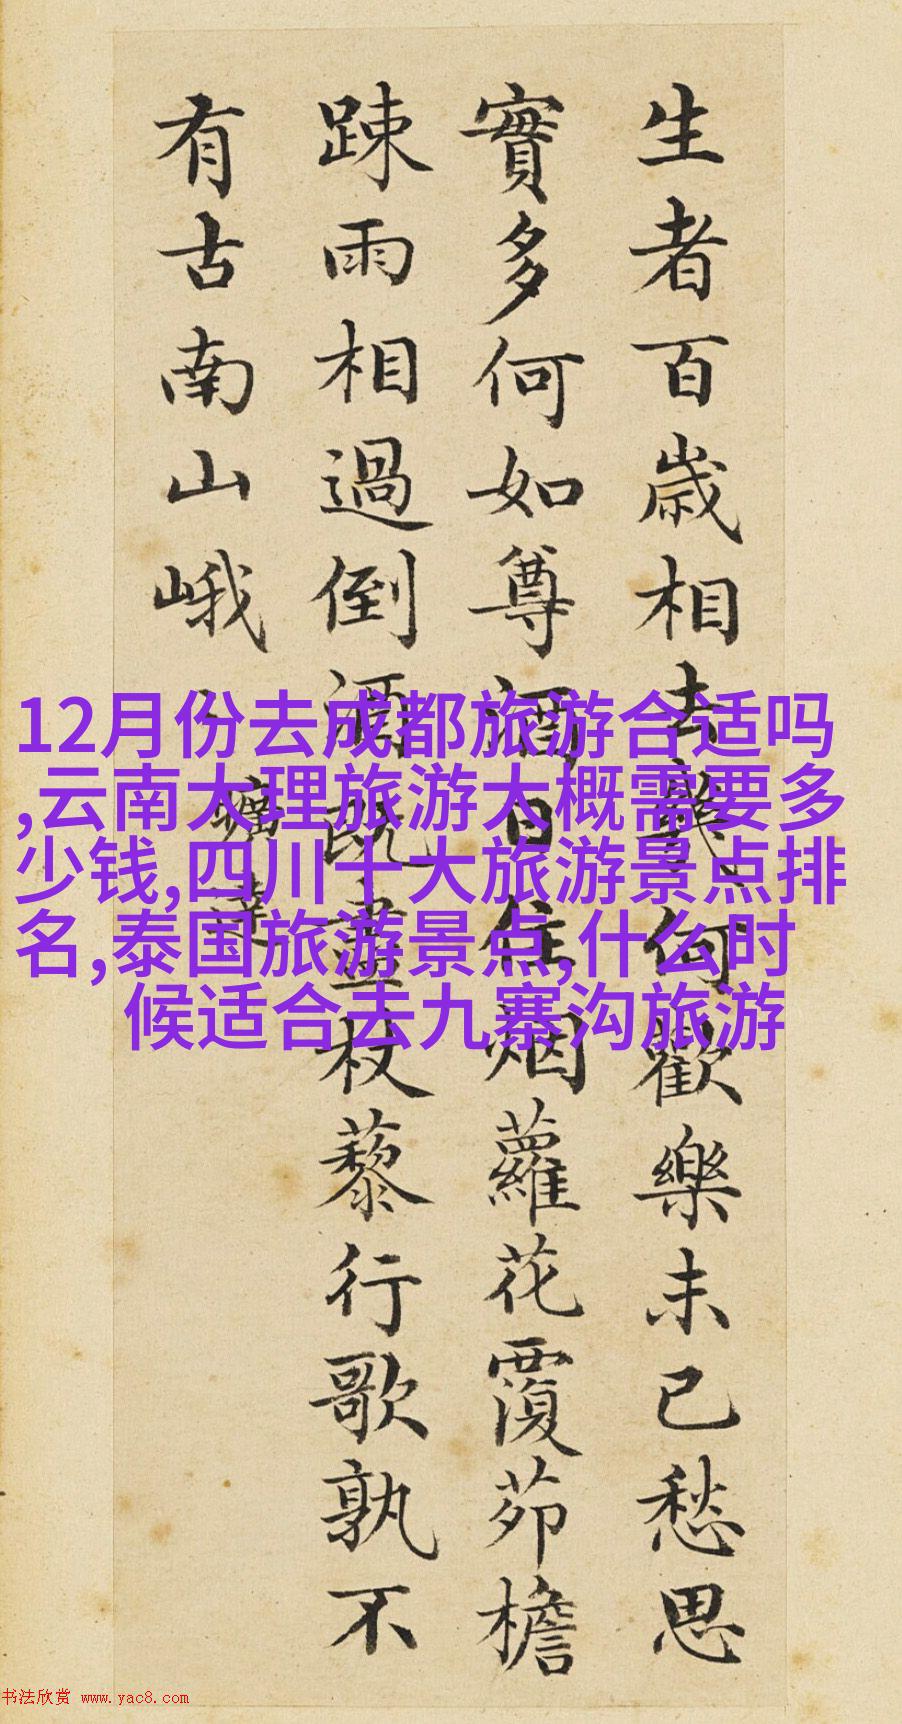 生者百歲相去幾何歡樂未已愁思
實多何如尊酒日往烟蘿花覆茆檐
踈雨相過倒酒既盡杖藜行歌孰不
有古南山峨〻 曠達
12月份去成都旅游合适吗
,云南大理旅游大概需要多
少钱,四川十大旅游景点排
名,泰国旅游景点,什么时
候适合去九寨沟旅游
书法欣赏 www.yac8.com